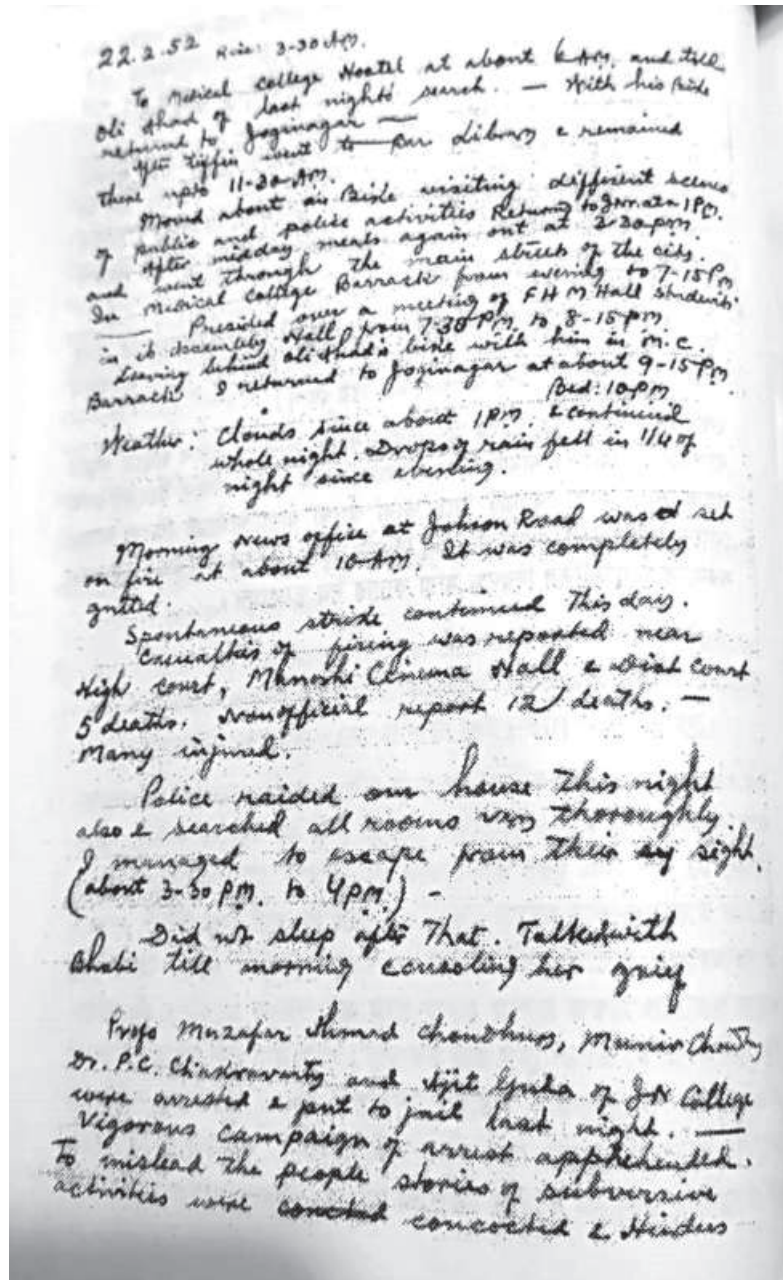 22.2.52 Rise: 3-30 AM.
To Medical College Hostel at about 6 AM. and till
Oli Ahad of last night's search. — With his bike
returned to Joginagar —
After tiffin went to Bar Library & remained
there upto 11-30 AM.
Moved about on Bike visiting different scenes
of public and police activities Returned to at 1 PM.
After midday meals again out at 2-30 pm.
and went through the main streets of the city.
In Medical College Barrack from evening to 7-15 PM
— Presided over a meeting of F H M Hall students
in its Assembly Hall from 7-30 PM to 8-15 pm.
Leaving behind Oli Ahad's bike with him in M.C.
Barrack I returned to Joginagar at about 9-15 Pm
Bed: 10 pm
Weather: Clouds since about 1 PM. & continued
whole night. Drops of rain fell in 1/4 of
night since evening.
Morning News office at Johson Road was set
on fire at about 10 AM. It was completely
gutted.
Spontaneous strike continued This day.
Casualties of firing was reported near
High court, Manoshi Cinema Hall & Dist court
5 deaths. Nonofficial report 12 deaths. —
Many injured.
Police raided our house This night
also & searched all rooms very thoroughly.
I managed to escape from Their sight.
(about 3-30 pm. to 4 pm.) -
Did not sleep after That. Talked with
Bhabi till morning consoling her grief
Profs Muzafar Ahmad Choudhury, Munir Choudhy
Dr. P.C. Chakravarty and Ajit Guha of JN College
were arrested & put to jail last night. —
Vigorous campaign of arrest apprehended.
To mislead the people stories of subversive
activities were concocted & Hindus